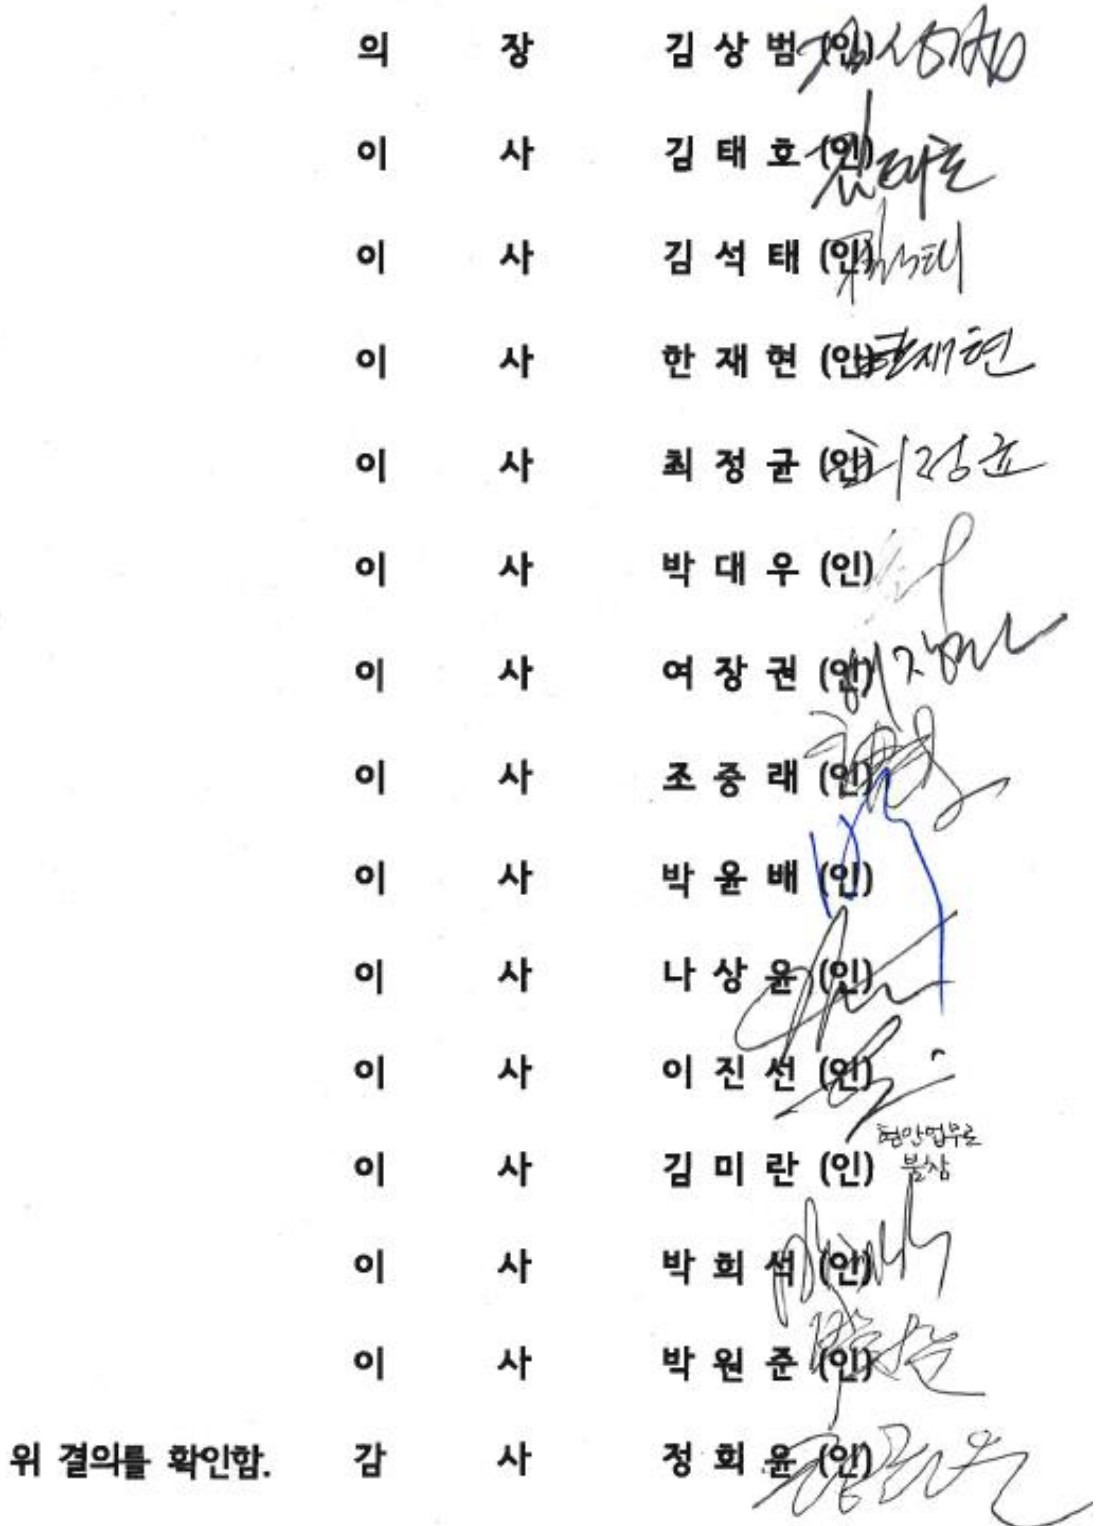 의 장 김 상 범 (인) 김상범
이 사 김 태 호 (인) 김태호
이 사 김 석 태 (인) 김석태
이 사 한 재 현 (인) 한재현
이 사 최 정 균 (인) 최정균
이 사 박 대 우 (인)
이 사 여 장 권 (인)
이 사 조 중 래 (인)
이 사 박 윤 배 (인)
이 사 나 상 윤 (인)
이 사 이 진 선 (인)
현안업무로
이 사 김 미 란 (인) 불참
이 사 박 희 석 (인)
이 사 박 원 준 (인)
위 결의를 확인함. 감 사 정 희 윤 (인)